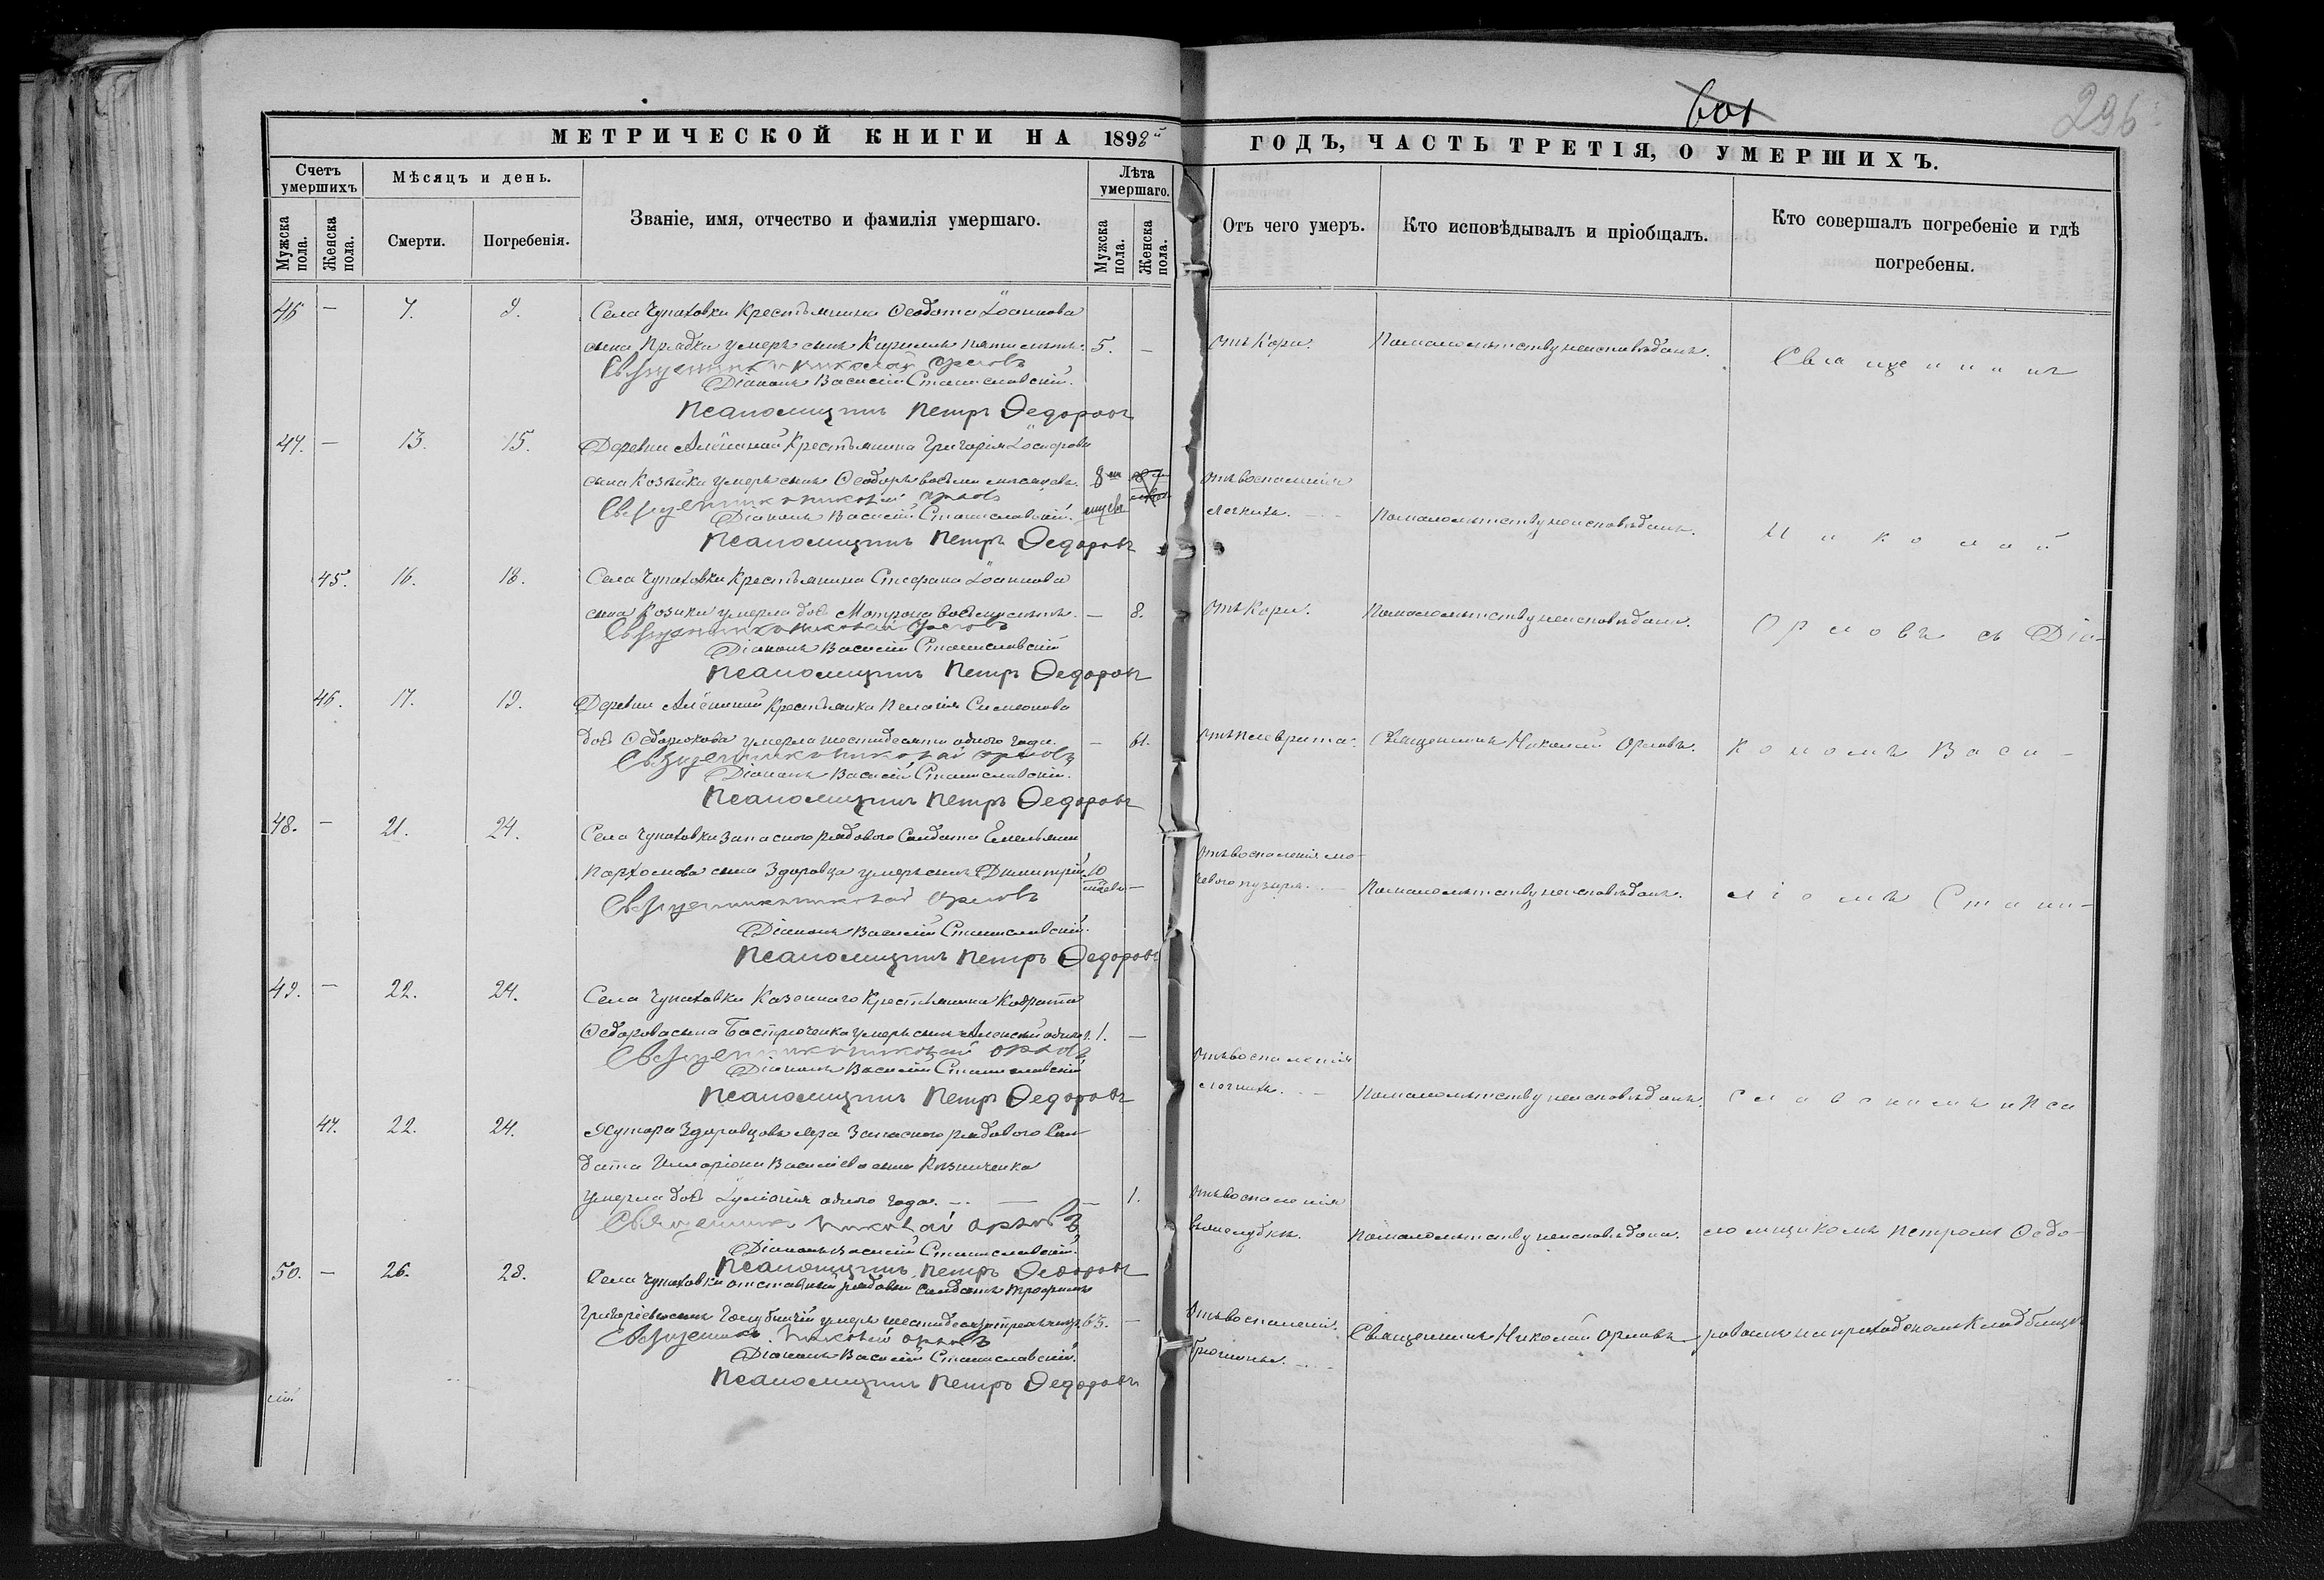 601
296
МЕТРИЧЕСКОЙ КНИГИ НА 1892й ГОДЪ, ЧАСТЬ ТРЕТІЯ, О УМЕРШИХЪ.
Счетъ умершихъ
Мѣсяцъ и день.
Званіе, имя, отчество и фамилія умершаго.
Лѣта умершаго.
Отъ чего умеръ.
Кто исповѣдывалъ и пріобщалъ.
Кто совершалъ погребеніе и гдѣ
погребены.
Мужска пола.
Женска пола.
Смерти.
Погребенія.
Мужска пола.
Женска пола.
46 — 7. 9. Села Чупаховки Крестьянина Ѳеодота Іоаннова
сына Прядки умеръ сынъ Кириллъ пяти лѣтъ. 5. — Отъ Кори. По малолѣтству неисповѣданъ. Священникъ
Священникъ Николай Орловъ
Діаконъ Василій Станиславскій.
Псаломщикъ Петръ Федоровъ
47. — 13. 15. Деревни Алёшиной Крестьянина Григорія Іосифова
сына Козѣйки умеръ сынъ Ѳеодоръ восьми мѣсяцевъ. 8ми Отъ воспаленія
Священникъ Николай Орловъ
Діаконъ Василій Станиславскій. мцевъ легкихъ. — По малолѣтству неисповѣданъ. Николай
Псаломщикъ Петръ Федоровъ
45. 16. 18. Села Чупаховки Крестьянина Стефана Іоаннова
сына Козики умерла дочь Матрона восьми лѣтъ. — 8. Отъ Кори. По малолѣтству неисповѣдана. Орловъ съ Діа-
Священникъ Николай Орловъ
Діаконъ Василій Станиславскій
Псаломщикъ Петръ Федоровъ
46. 17. 19. Деревни Алёшиной Крестьянка Пелагія Симеонова
дочь умерла шестидесяти одного года. — 61. Отъ плеврита. Священникъ Николай Орловъ. кономъ Васи-
Священникъ Николай Орловъ
Діаконъ Василій Станиславскій.
Псаломщикъ Петръ Федоровъ
48. — 21. 24. Села Чупаховки запаснаго рядового Солдата Емельяна
Пархомова сына Здоровца умеръ сынъ Димитрій. 10 мцевъ — Отъ воспаленія мо-
чевого пузыря. — По малолѣтству неисповѣданъ. ліемъ Стани-
Священникъ Николай Орловъ
Діаконъ Василій Станиславскій.
Псаломщикъ Петръ Федоровъ
49. — 22. 24. Села Чупаховки Казеннаго Крестьянина Кодрата
Ѳедорова сына Бастрюченка умеръ сынъ Алексій одного г. 1. —
Священникъ Николай Орловъ Отъ воспаленія
Діаконъ Василій Станиславскій
Псаломщикъ Петръ Федоровъ легкихъ. — По малолѣтству неисповѣданъ. славскимъ и Пса
47. 22. 24. Хутора Здоровцовъ Яра Запаснаго рядового Сол-
дата Илларіона Василіева сына Кизниченка
умерла дочь Іуліанія одного года. — — 1. Отъ воспаленія
Священникъ Николай Орловъ По малолѣтству неисповѣдана. ломщикомъ Петромъ Ѳедо-
Діаконъ Василій Станиславскій.
Псаломщикъ Петръ Федоровъ
50. — 26. 28. Села Чупаховки отставный рядовый Солдатъ Трофимъ
Григоріевъ сынъ Голубничій умеръ 63. — Отъ воспаленія Священникъ Николай Орловъ ровымъ на приходскомъ Кладбищѣ
Священникъ Николай Орловъ брюшины. —
Діаконъ Василій Станиславскій.
Псаломщикъ Петръ Федоровъ